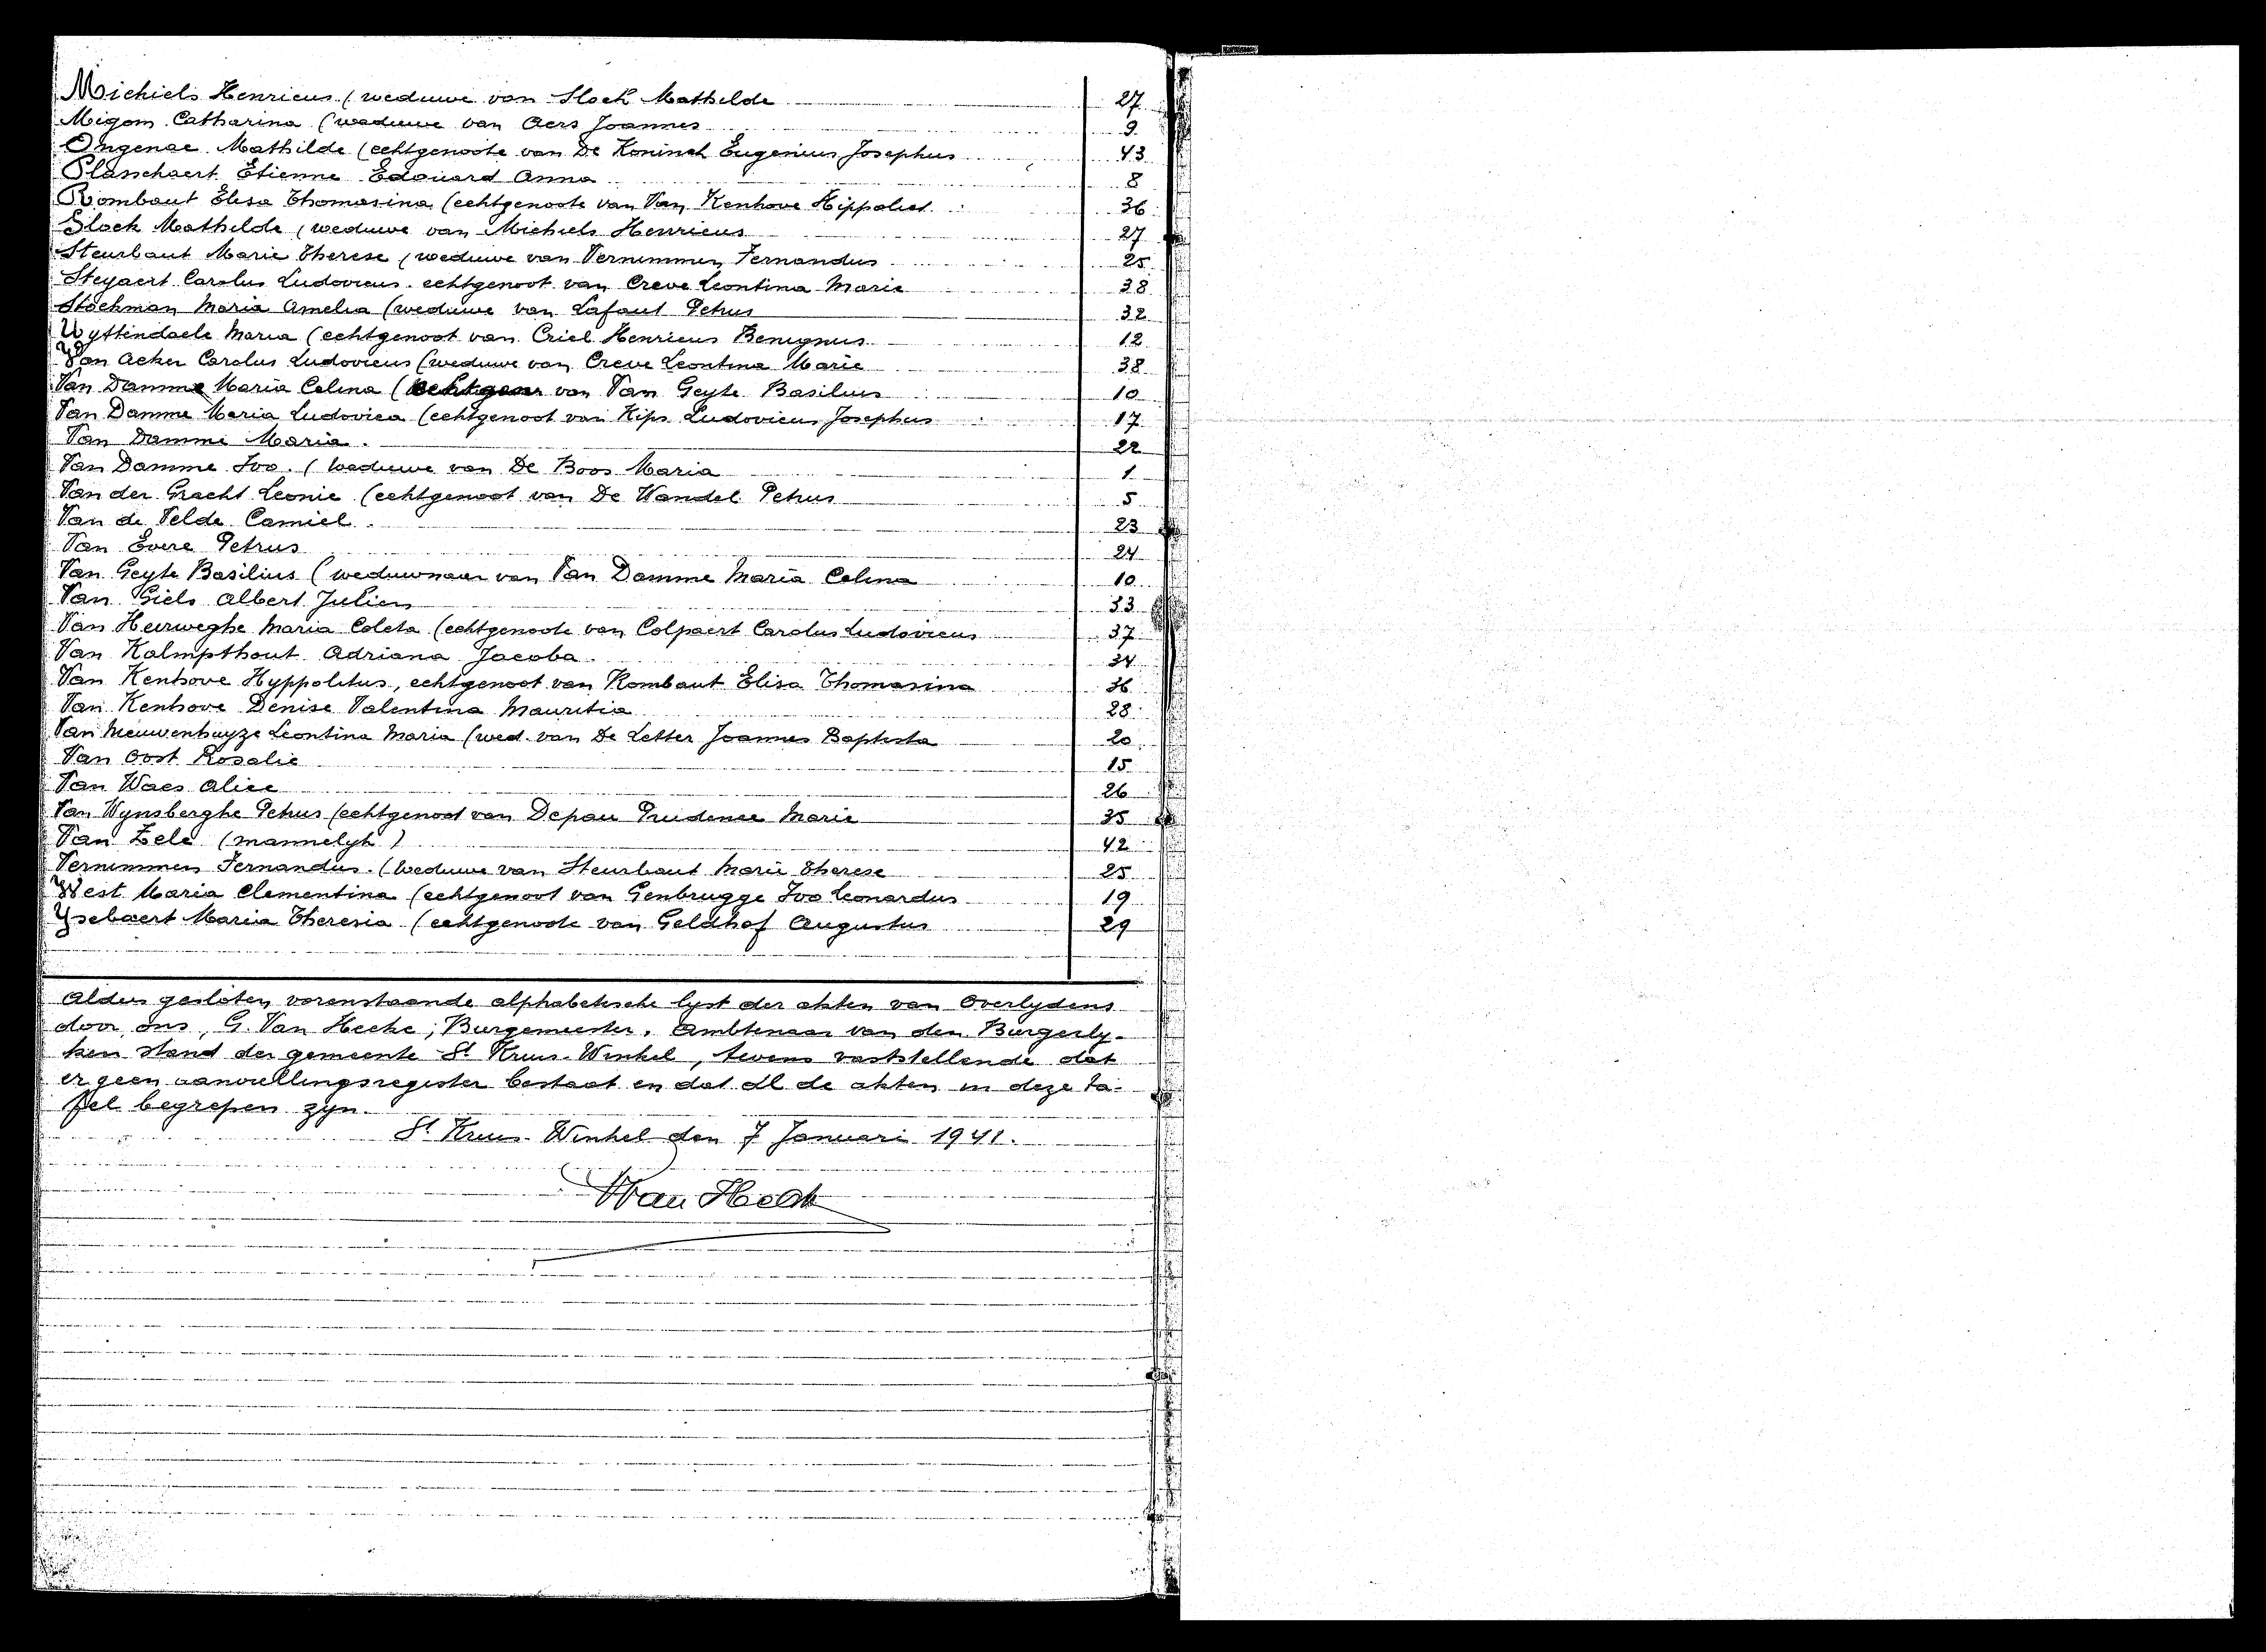 Michiels Henricus (weduwe van Slock Mathilde 27
Migom Catharina (weduwe van Aers Joannes 9
Ongenae Mathilde (echtgenoote van De Koninck Eugenius Josephus 43
Planchaert Etienne Edouard Anna 8
Rombaut Elisa Thomasina (echtgenoote van Van Kenhove Hippoliet 36
Slock Mathilde (weduwe van Michiels Henricus 27
Steurbaut Marie Therese (weduwe van Vernimmen Fernandus 25
Steyaert Carolus Ludovicus echtgenoot van Creve Leontina Marie 38
Stockman Maria Amelia (weduwe van Lafaut Petrus 32
Uyttendaele Maria (echtgenoot van Criel Henricus Benignus 12
Van Acker Carolus Ludovicus (weduwe van Creve Leontina Marie 38
Van Damme Maria Celina (echtgen van Van Geyte Basilius 10
Van Damme Maria Ludovica (echtgenoot van Kips Ludovicus Josephus 17
Van Damme Maria. 22
Van Damme Ivo. (weduwe van De Boos Maria 1
Van der Gracht Leonie (echtgenoot van De Wandel Petrus 5
Van de Velde Camiel. 23
Van Evere Petrus 24
Van Geyte Basilius (weduwnaar van Van Damme Maria Celina 10
Van Giels Albert Julien 33
Van Heirweghe Maria Coleta (echtgenoote van Colpaert Carolus Ludovicus 37
Van Kalmpthout Adriana Jacoba. 34
Van Kenhove Hyppolitus, echtgenoot van Rombaut Elisa Thomasina 36
Van Kenhove Denise Valentina Mauritia 28
Van Nieuwenhuyze Leontina Maria (wed. van De Letter Joannes Baptista 20
Van Oost Rosalie 15
Van Waes Alice 26
Van Wynsberghe Petrus (echtgenoot van Depau Prudence Marie 35
Van Zele (mannelyk) 42
Vernimmen Fernandus. (weduwe van Steurbaut Marie Therese 25
West Maria Clementina (echtgenoot van Genbrugge Ivo Leonardus 19
Ysebaert Maria Theresia (echtgenoote van Geldhof Augustus 29
Aldus gesloten vorenstaande alphabetische lyst der akten van Overlydens
door ons, G. Van Hecke, Burgemeester, Ambtenaar van den Burgerly-
ken stand der gemeente St Kruis-Winkel, tevens vaststellende dat
er geen aanvullingsregister bestaat en dat al de akten in deze ta-
fel begrepen zyn.
St Kruis-Winkel den 7 Januari 1941.